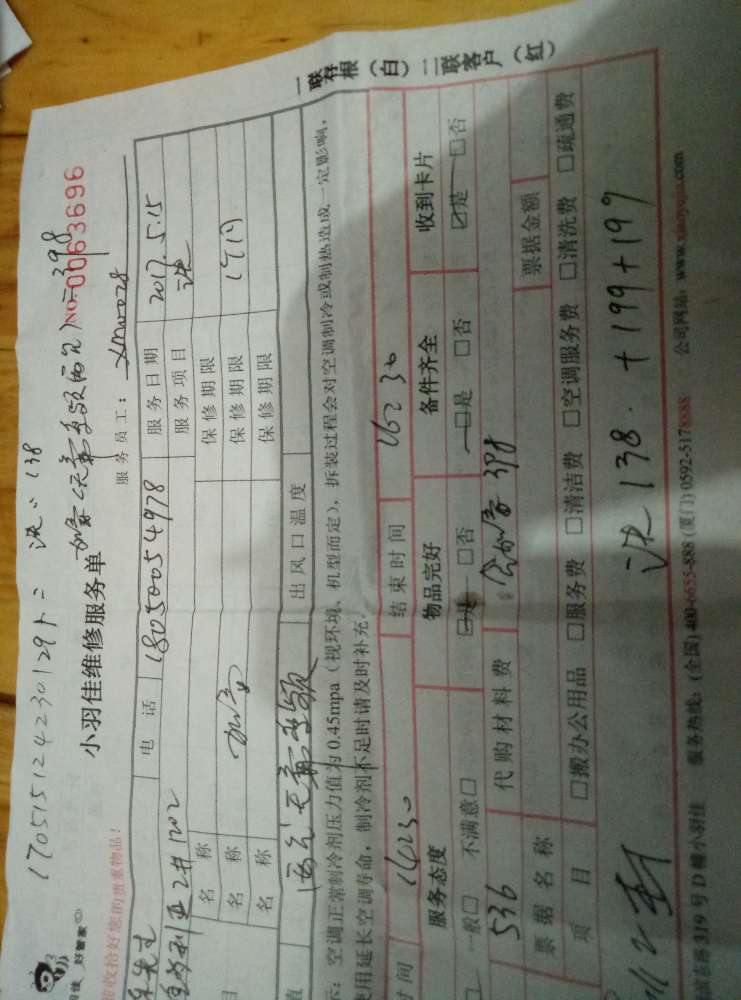 170515124230129
洗: 138
加氟
398
小羽佳维修服务单
NO:0063696
好管家
收拾好您的贵重物品!
服务员工:
电话 18050054978 服务日期 2017.5.15
2#1202 服务项目 洗
名称 保修期限
名称 加氟 保修期限 1个月
名称 保修期限
出风口温度
示: 空调正常制冷剂压力值为0.45mpa (视环境、机型而定), 拆装过程会对空调制冷或制热造成一定影响,
使用延长空调寿命, 制冷剂不足时请及时补充。
时间 14:30 结束时间 16:30
服务态度 物品完好 备件齐全 收到卡片
一般□ 不满意□ ☑是 □否 □是 □否 ☑是 □否
536 代购材料费 含加氟398
票据名称 票据金额
项目 □搬办公用品 □服务费 □清洁费 □空调服务费 □清洗费 □疏通费
洗138.+199+199
路319号D幢小羽佳 服务热线: (全国) 400-6655-888 (厦门) 0592-5178888 公司网站: www.xiaoyujia.com
一联存根(白) 二联客户(红)